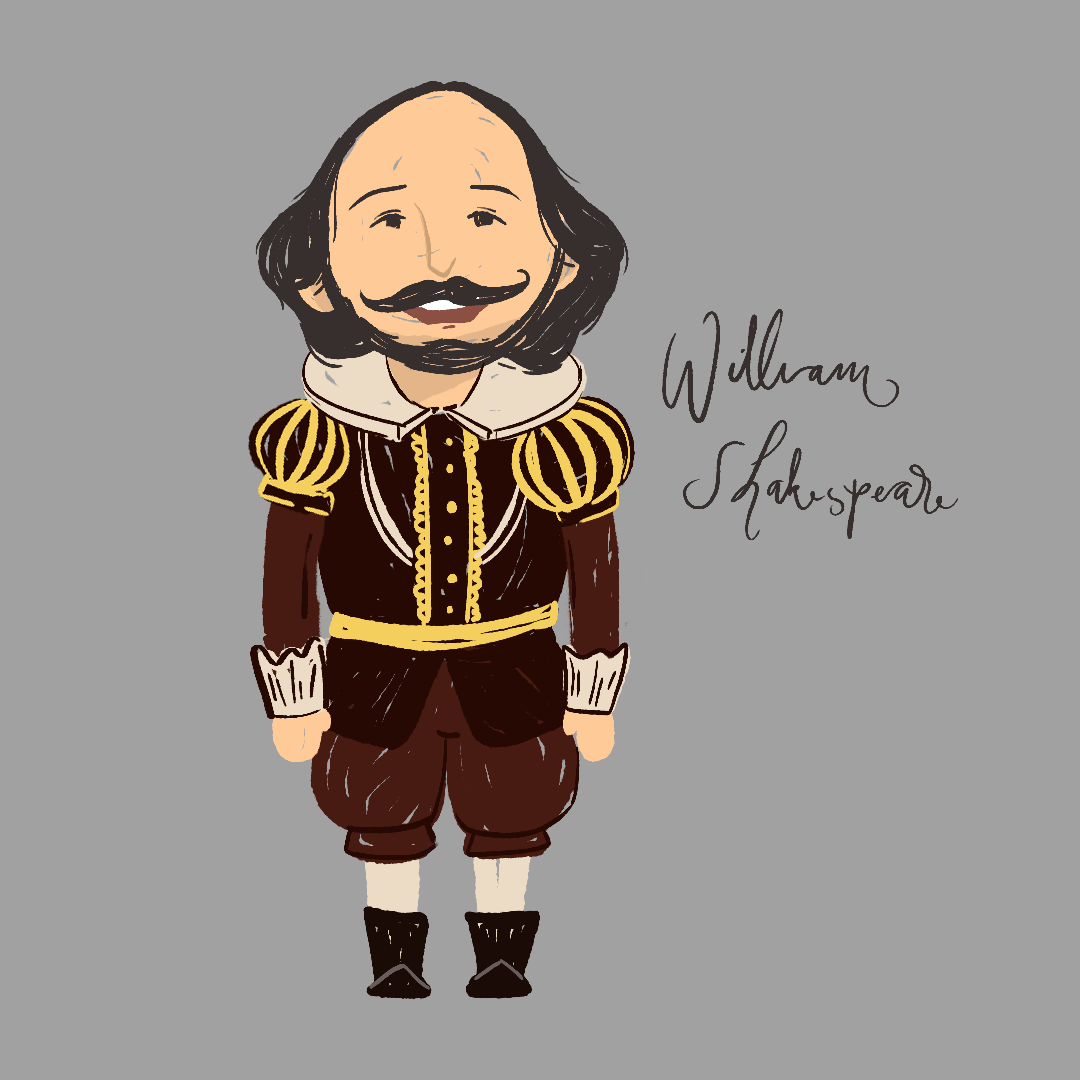 William
Shakespeare